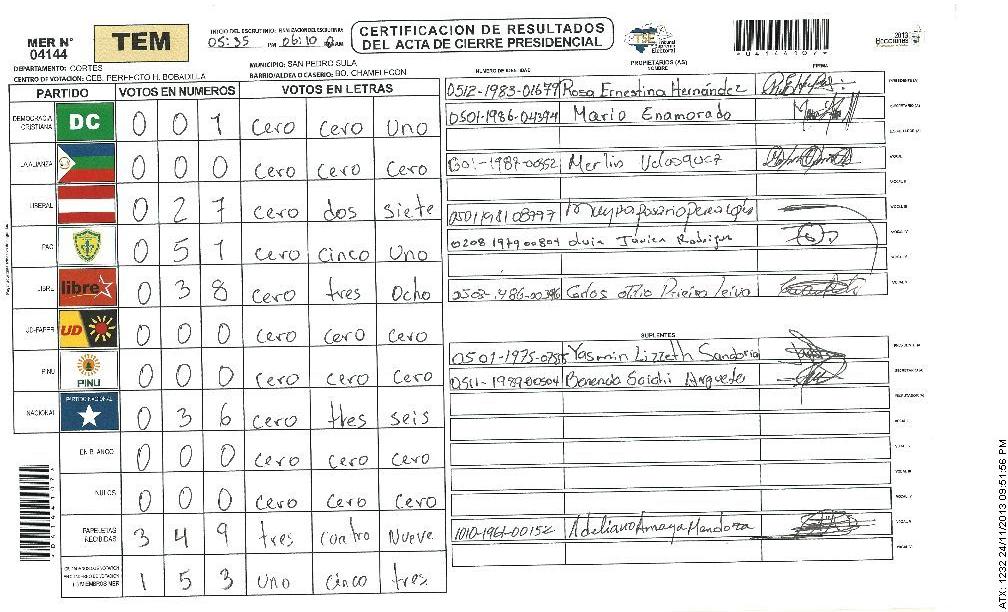 MER N° 04144
TEM
INICIO DEL ESCRUTINIO: FINALIZACION DEL ESCRUTINIO:
05:35 PM 06:10 AM
CERTIFICACION DE RESULTADOS
DEL ACTA DE CIERRE PRESIDENCIAL
TSE Tribunal Supremo Electoral
2013 Elecciones
DEPARTAMENTO: CORTES
MUNICIPIO: SAN PEDRO SULA
CENTRO DE VOTACION: CEB. PERFECTO H. BOBADILLA
BARRIO/ALDEA O CASERIO: BO. CHAMELECON
PARTIDO VOTOS EN NUMEROS VOTOS EN LETRAS
DEMOCRACIA CRISTIANA DC 0 0 1 cero cero Uno
LA ALIANZA 0 0 0 cero cero cero
LIBERAL 0 2 7 cero dos siete
PAC 0 5 1 cero cinco Uno
LIBRE libre 0 3 8 cero tres Ocho
UD-FAPER UD 0 0 0 cero cero cero
PINU PINU 0 0 0 cero cero cero
NACIONAL PARTIDO NACIONAL 0 3 6 cero tres seis
EN BLANCO 0 0 0 cero cero cero
NULOS 0 0 0 cero cero cero
PAPELETAS RECIBIDAS 3 4 9 tres cuatro Nueve
1 5 3 uno cinco tres
NUMERO DE IDENTIDAD PROPIETARIOS (AS) NOMBRE FIRMA
0512-1983-01679 Rosa Ernestina Hernández PRESIDENTE (A)
0501-1986-04394 Mario Enamorado SECRETARIO (A)
ESCRUTADOR (A)
Merlin Velasquez VOCAL I
VOCAL II
0501198108997 VOCAL III
0208 1979 00804 Luis Javier Rodriguez VOCAL IV
VOCAL V
Carlos VOCAL VI
SUPLENTES
0501-1975- Yasmin Lizzeth Sandoria PRESIDENTE (A)
0511-1989-00504 Brenda SECRETARIO (A)
ESCRUTADOR (A)
VOCAL I
VOCAL II
VOCAL III
VOCAL IV
VOCAL V
1010-1961-00152 Adeliano Amaya Mendoza
VOCAL VI
ATX: 1232 24/11/2013 09:51:56 PM